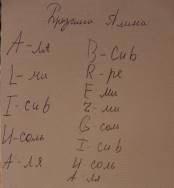 Ярузина Алина
А-ля
L-ми
I-сив
И-соль
А-ля
В-сив
R-ре
Е ми
Z-ми
G соль
I-сив
И соль
А ля